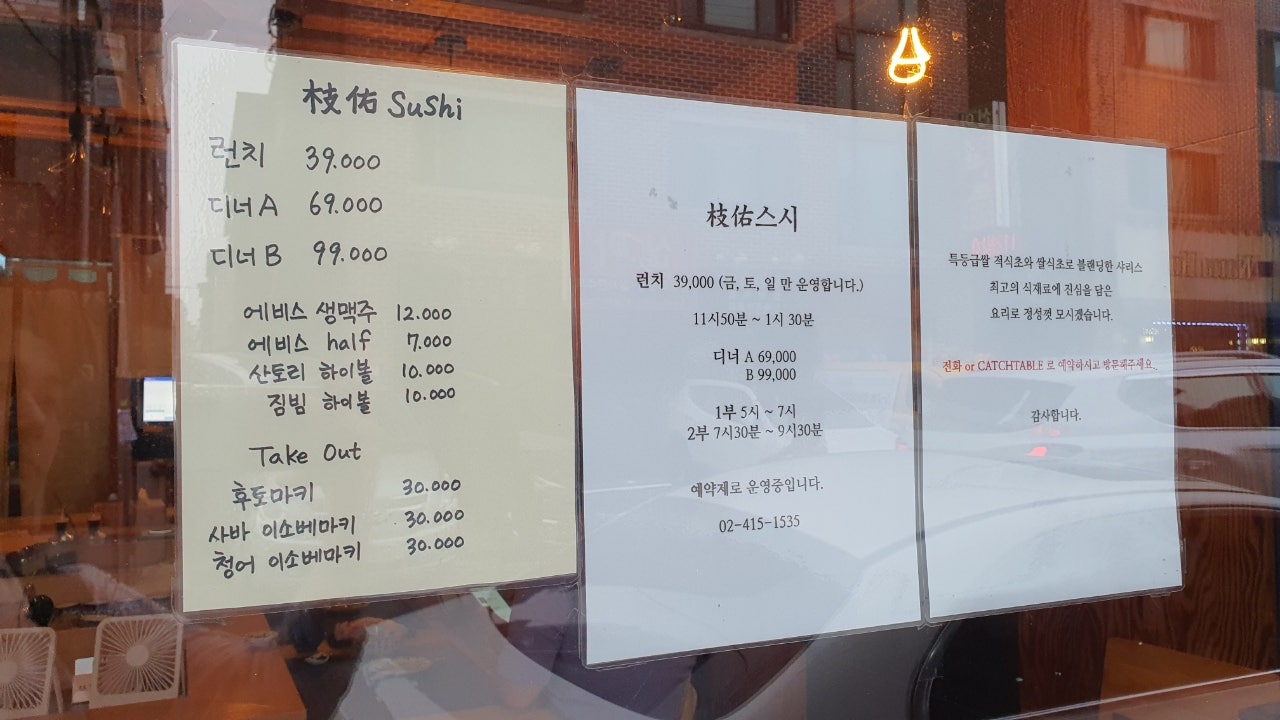 枝佑 Sushi
런치 39.000
디너 A 69.000
디너 B 99.000
에비스 생맥주 12.000
에비스 half 7.000
산토리 하이볼 10.000
짐빔 하이볼 10.000
Take Out
후토마키 30.000
사바 이소베마키 30.000
청어 이소베마키 30.000
枝佑스시
런치 39,000 (금, 토, 일 만 운영합니다.)
11시50분 ~ 1시 30분
디너 A 69,000
B 99,000
1부 5시 ~ 7시
2부 7시30분 ~ 9시30분
예약제로 운영중입니다.
02-415-1535
특등급쌀 적식초와 쌀식초로 블랜딩한 샤리스
최고의 식재료에 진심을 담은
요리로 정성껏 모시겠습니다.
전화 or CATCHTABLE 로 예약하시고 방문해주세요.
감사합니다.